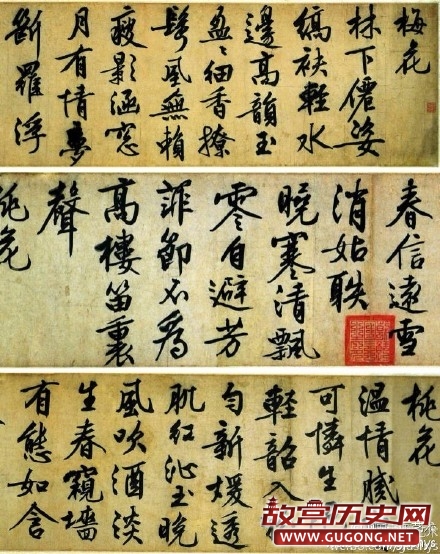 梅花
林下僊姿
縞袂輕水
邊高韻玉
盈〻細香撩
鬢風無賴
瘦影涵窓
月有情夢
斷羅浮
春信遠雪
消姑
曉寒清飄
零自避芳
菲節不為
高樓笛裏
聲
桃花
桃花
温情膩
可憐生
輕韶入
勻新煖透
肌紅沁玉晚
風吹酒淡
生春窺墻
有態如含
故宫历史网
WWW.GUGONG.NET